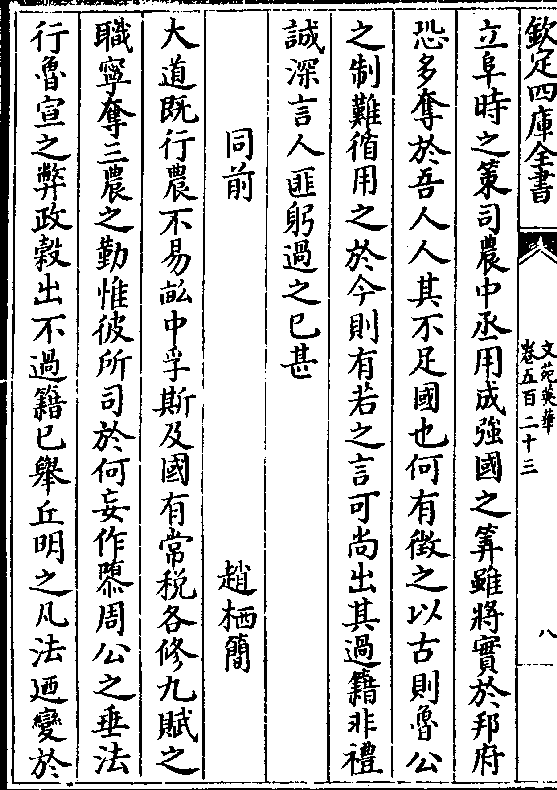 欽定四庫全書
文苑英華
卷五百二十三
八
立阜時之策司農中丞用成強國之筭雖將實於邦府
恐多奪於吾人人其不足國也何有徵之以古則魯公
之制難循用之於今則有若之言可尚出其過籍非禮
誠深言人匪躬過之已甚
同前
趙栖簡
大道既行農不易畝中孚斯及國有常税各修九賦之
職寧奪三農之勤惟彼所司於何妄作隳周公之垂法
行魯宣之弊政穀出不過籍已舉丘明之凡法廼變於